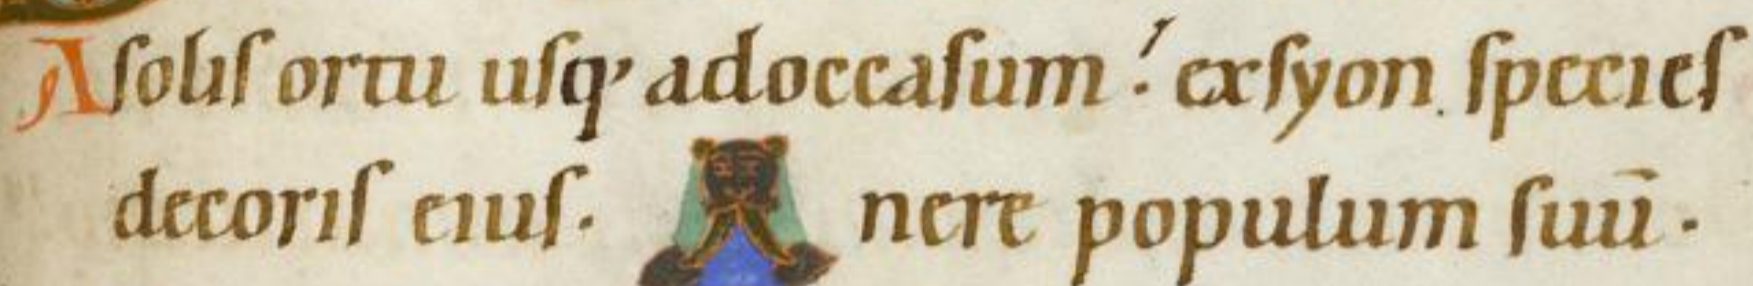 Asoliſ ortu uſq; adoccaſum: exſyon. ſpecieſ
decoriſ eiuſ. nere populum ſuū.